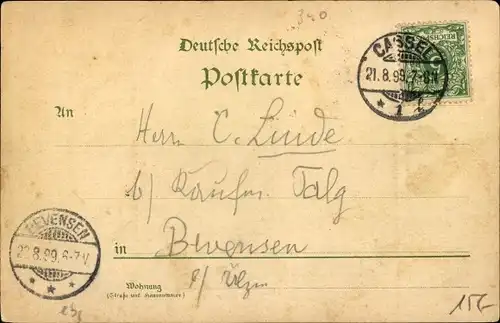 340
Deutsche Reichspost
Postkarte
CASSEL
21.8.99.7-8V
* 1
REICHSPOST
5
An
Herrn C. Linde
b/ Kaufm. Talg
in Bevensen
p/ Ülzen
BEVENSEN
22.8.99.6-7V
* * *
Wohnung
(Straße und Hausnummer)
15,-